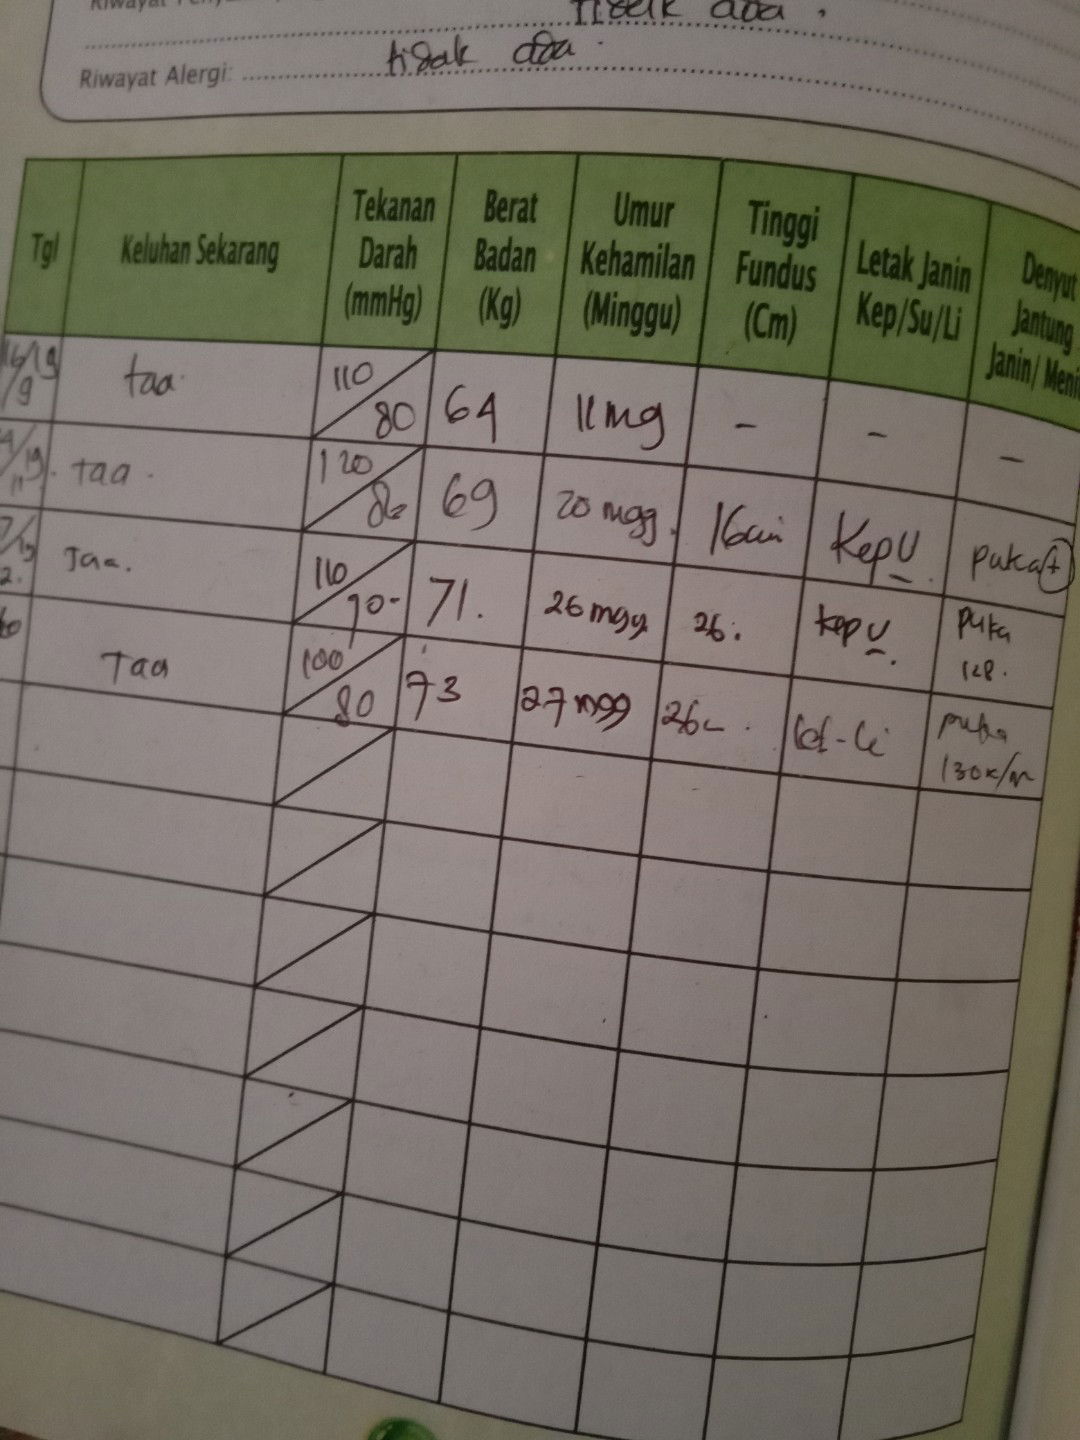 tidak ada .
Riwayat Alergi: tidak ada .
Tgl Keluhan Sekarang Tekanan Darah (mmHg) Berat Badan (Kg) Umur Kehamilan (Minggu) Tinggi Fundus (Cm) Letak Janin Kep/Su/Li Denyut Jantung Janin/
16/19 /9 taa 110 80 64 11 mg - - -
taa . 120 69 20 mgg. 16cm Kep U . puka +
Taa. 110 71. 26 mgg 26. kep U . puka 128.
Taa 100 80 73 27 mgg puka 130x/m